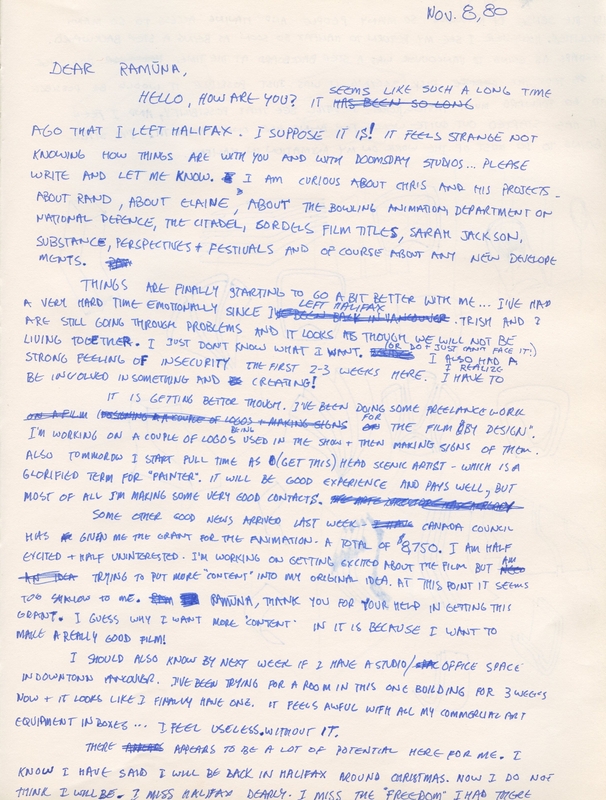 Nov. 8, 80
DEAR RAMŪNA,
HELLO, HOW ARE YOU? IT HAS BEEN SO LONG SEEMS LIKE SUCH A LONG TIME
AGO THAT I LEFT HALIFAX. I SUPPOSE IT IS! IT FEELS STRANGE NOT
KNOWING HOW THINGS ARE WITH YOU AND WITH DOOMSDAY STUDIOS... PLEASE
WRITE AND LET ME KNOW. I AM CURIOUS ABOUT CHRIS AND HIS PROJECTS -
ABOUT RAND, ABOUT ELAINE, ABOUT THE BOWLING ANIMATION, DEPARTMENT ON
NATIONAL DEFENCE, THE CITADEL, BORDELS FILM TITLES, SARAH JACKSON,
SUBSTANCE, PERSPECTIVES + FESTIVALS AND OF COURSE ABOUT ANY NEW DEVELOPE
MENTS.
THINGS ARE FINALLY STARTING TO GO A BIT BETTER WITH ME... I'VE HAD
A VERY HARD TIME EMOTIONALLY SINCE I'VE BEEN BACK IN VANCOUVER LEFT HALIFAX. TRISH AND I
ARE STILL GOING THROUGH PROBLEMS AND IT LOOKS AS THOUGH WE WILL NOT BE
LIVING TOGETHER. I JUST DON'T KNOW WHAT I WANT. (OR DO + JUST CAN'T FACE IT!) I ALSO HAD A
STRONG FEELING OF INSECURITY THE FIRST 2-3 WEEKS HERE. I REALIZE I HAVE TO
BE INVOLVED IN SOMETHING AND CREATING!
IT IS GETTING BETTER THOUGH. I'VE BEEN DOING SOME FREELANCE WORK
ON A FILM (DESIGNING A COUPLE OF LOGOS + MAKING SIGNS FOR THE FILM "BY DESIGN".
I'M WORKING ON A COUPLE OF LOGOS BEING USED IN THE SHOW + THEN MAKING SIGNS OF THEM.
ALSO TOMMOROW I START FULL TIME AS (GET THIS) HEAD SCENIC ARTIST - WHICH IS A
GLORIFIED TERM FOR "PAINTER". IT WILL BE GOOD EXPERIENCE AND PAYS WELL, BUT
MOST OF ALL I'M MAKING SOME VERY GOOD CONTACTS.
SOME OTHER GOOD NEWS ARRIVED LAST WEEK. CANADA COUNCIL
HAS GIVEN ME THE GRANT FOR THE ANIMATION - A TOTAL OF $8,750. I AM HALF
EXCITED + HALF UNINTERESTED. I'M WORKING ON GETTING EXCITED ABOUT THE FILM BUT NEED AM
AN IDEA TRYING TO PUT MORE "CONTENT" INTO MY ORIGINAL IDEA. AT THIS POINT IT SEEMS
TOO SHALLOW TO ME. RAMŪNA, THANK YOU FOR YOUR HELP IN GETTING THIS
GRANT. I GUESS WHY I WANT MORE "CONTENT" IN IT IS BECAUSE I WANT TO
MAKE A REALLY GOOD FILM!
I SHOULD ALSO KNOW BY NEXT WEEK IF I HAVE A STUDIO/OFFICE SPACE
IN DOWNTOWN VANCOUVER. I'VE BEEN TRYING FOR A ROOM IN THIS ONE BUILDING FOR 3 WEEKS
NOW + IT LOOKS LIKE I FINALLY HAVE ONE. IT FEELS AWFUL WITH ALL MY COMMERCIAL ART
EQUIPMENT IN BOXES... I FEEL USELESS WITHOUT IT.
THERE APPEARS TO BE A LOT OF POTENTIAL HERE FOR ME. I
KNOW I HAVE SAID I WILL BE BACK IN HALIFAX AROUND CHRISTMAS. NOW I DO NOT
THINK I WILL BE. I MISS HALIFAX DEARLY. I MISS THE "FREEDOM" I HAD THERE